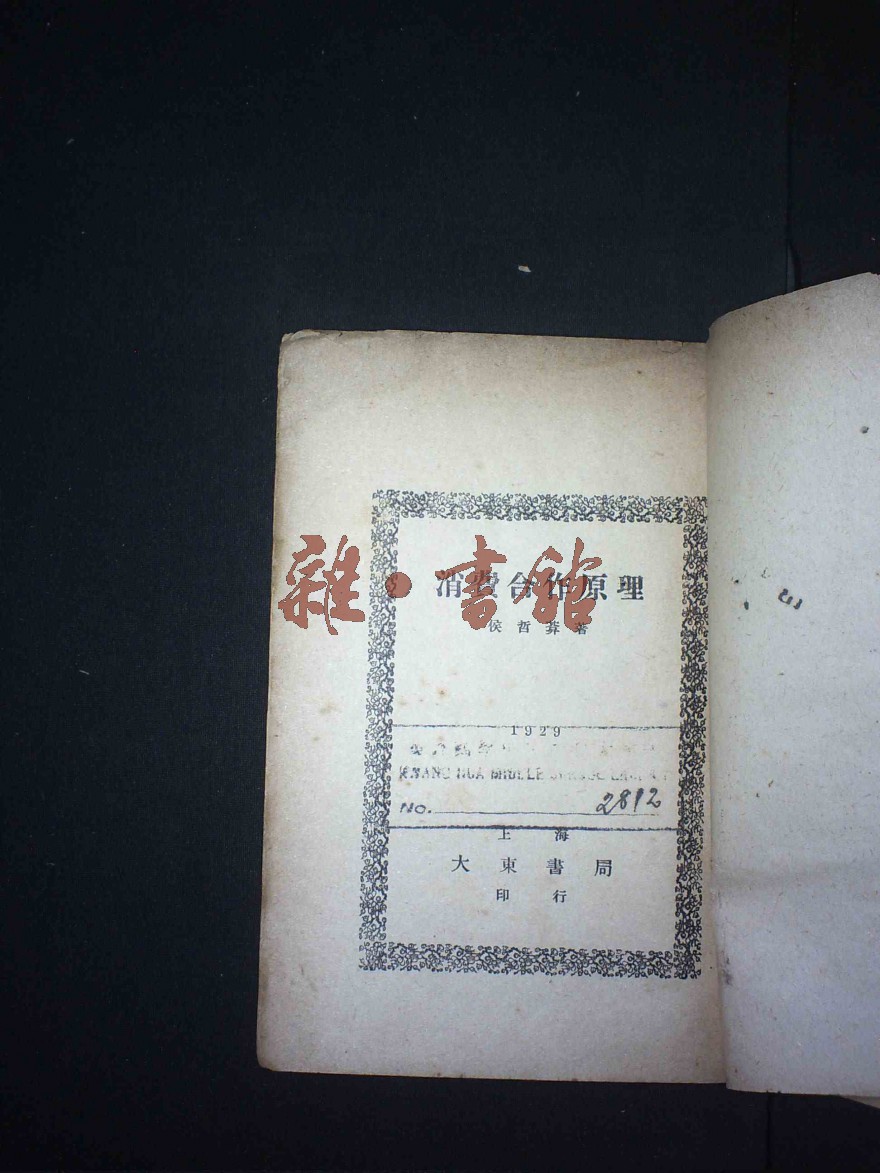 消費合作原理
侯哲葊著
1929
KWANG HUA MIDDLE
No. 2812
上海
大東書局
印行
雜·書館